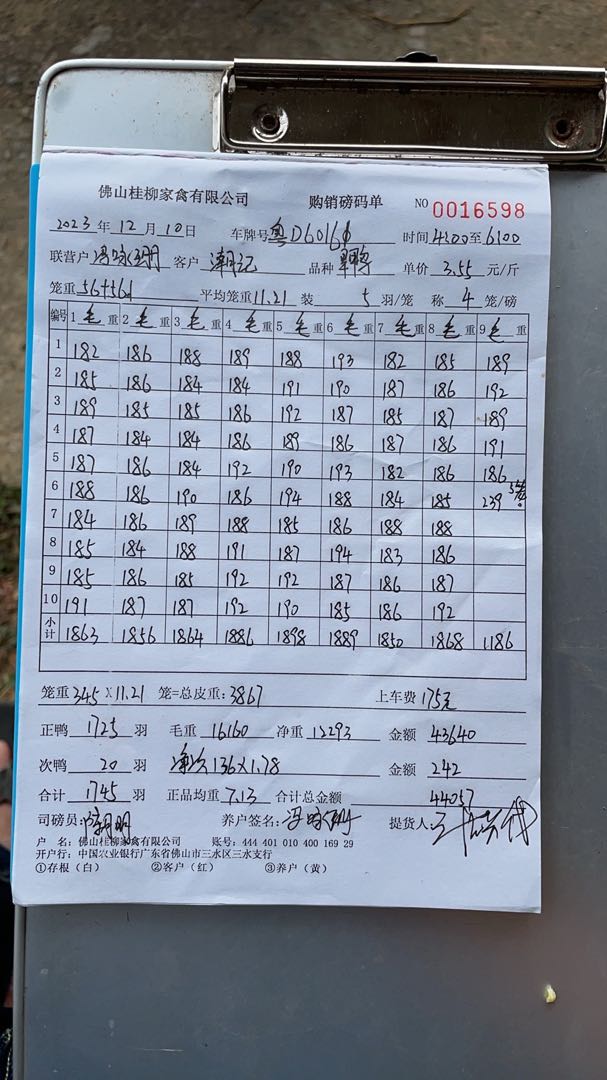 佛山桂柳家禽有限公司 购销磅码单 NO 0016598
2023 年 12 月 10 日 车牌号 粤D6016 时间 4:00 至 6:00
联营户 客户 潮记 品种 单价 3.55 元/斤
笼重 平均笼重 11.21 装 5 羽/笼 称 4 笼/磅
编号 1 毛 重 2 毛 重 3 毛 重 4 毛 重 5 毛 重 6 毛 重 7 毛 重 8 毛 重 9 毛 重
1 182 186 188 189 188 193 182 185 189
2 185 186 184 184 191 190 187 186 192
3 189 185 185 186 192 187 185 187 189
4 187 184 184 186 189 186 187 186 191
5 187 186 184 192 190 193 182 186 186
6 188 186 190 186 194 188 184 185 239
7 184 186 189 188 185 186 188 188
8 185 184 188 191 187 194 183 186
9 185 186 185 192 192 187 186 187
10 191 187 187 192 190 185 186 192
小计 1863 1856 1864 1886 1898 1889 1850 1868 1186
笼重 345 X 11.21 笼=总皮重: 3867 上车费 175元
正鸭 1725 羽 毛重 16160 净重 12293 金额 43640
次鸭 20 羽 136X1.78 金额 242
合计 1745 羽 正品均重 7.13 合计总金额 44057
司磅员: 养户签名: 提货人:
户 名: 佛山桂柳家禽有限公司 账号: 444 401 010 400 169 29
开户行: 中国农业银行广东省佛山市三水区三水支行
①存根(白) ②客户(红) ③养户(黄)